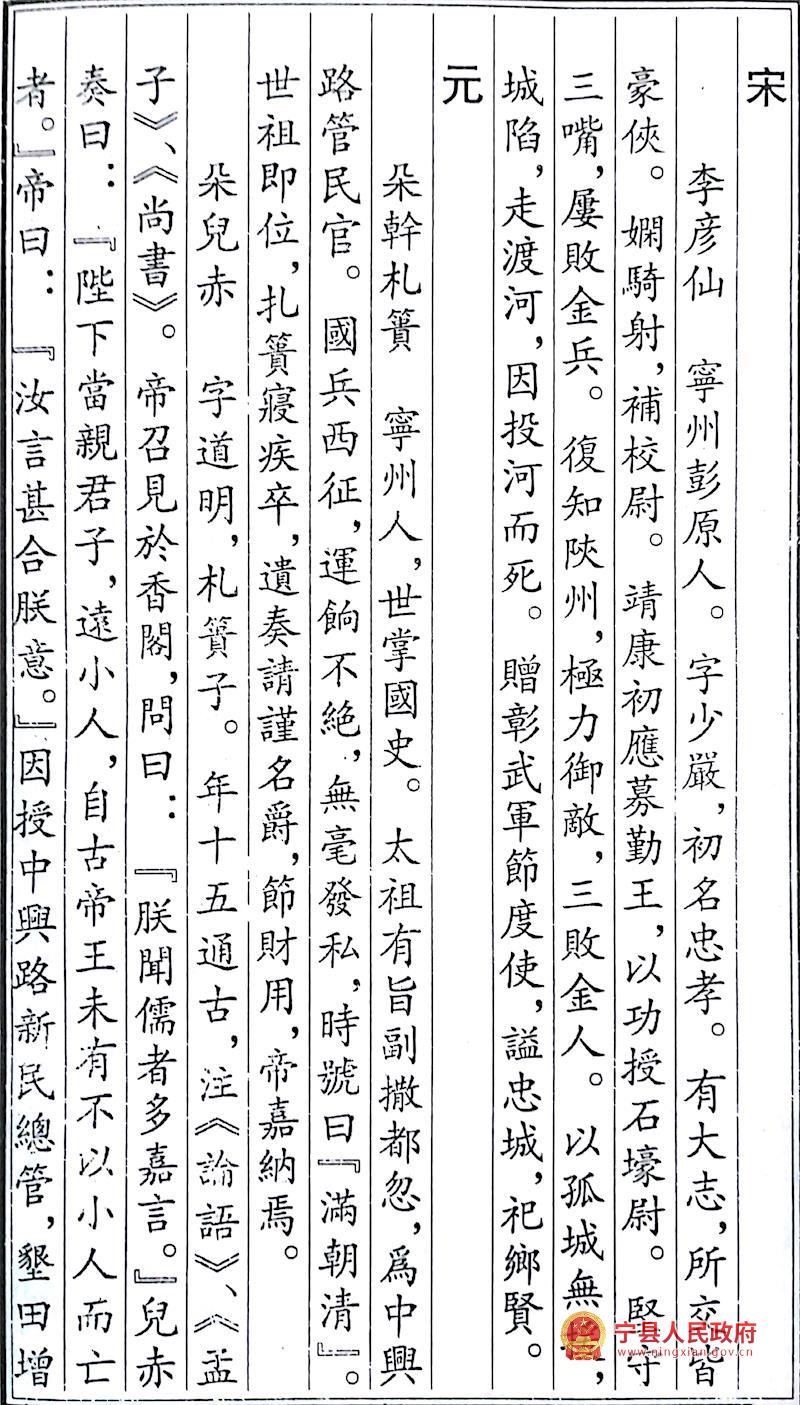 宋
李彦仙　寧州彭原人。字少嚴，初名忠孝。有大志，所交皆
豪俠。嫻騎射，補校尉。靖康初應募勤王，以功授石壕尉。堅守
三嘴，屢敗金兵。復知陝州，極力御敵，三敗金人。以孤城無，
城陷，走渡河，因投河而死。贈彰武軍節度使，謚忠城，祀鄉賢。
元
朵幹札簣　寧州人，世掌國史。太祖有旨副撒都忽，爲中興
路管民官。國兵西征，運餉不絶，無毫發私，時號曰『滿朝清』。
世祖即位，扎簣寢疾卒，遺奏請謹名爵，節財用，帝嘉納焉。
朵兒赤　字道明，札簣子。年十五通古，注《論語》、《孟
子》、《尚書》。帝召見於香閣，問曰：『朕聞儒者多嘉言。』兒赤
奏曰：『陛下當親君子，遠小人，自古帝王未有不以小人而亡
者。』帝曰：『汝言甚合朕意。』因授中興路新民總管，墾田增
宁县人民政府
www.ningxian.gov.cn